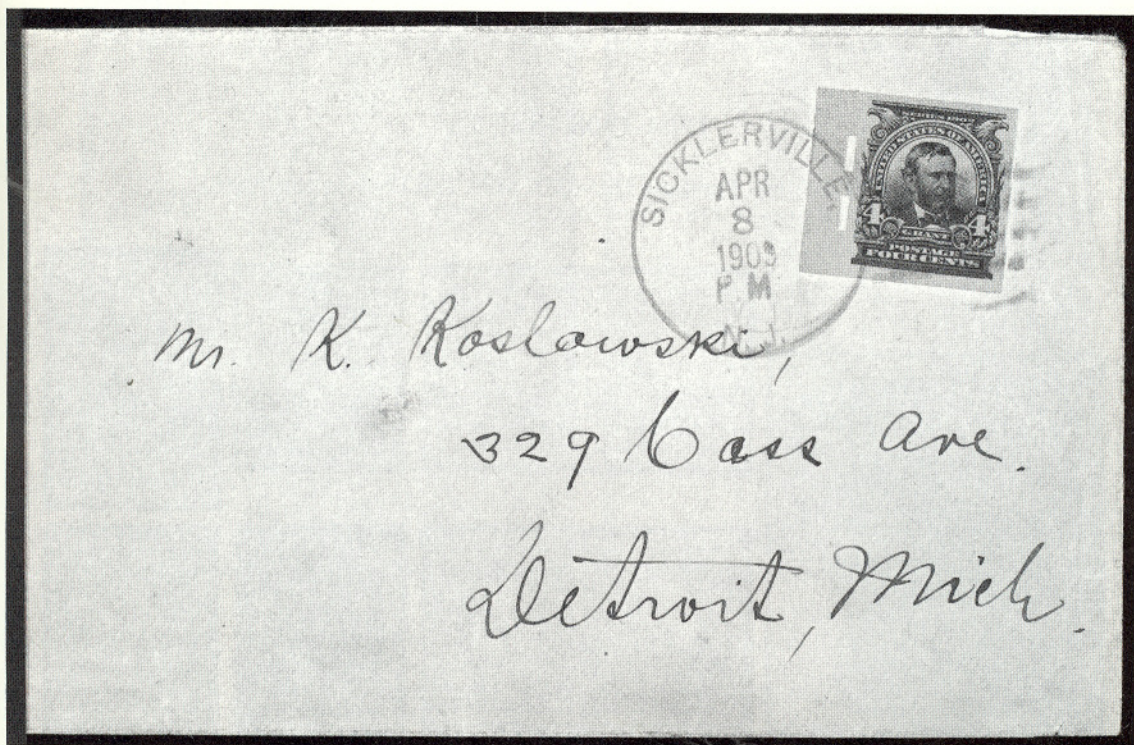 SICKLERVILLE,
APR
8
1909
P.M
N.J.
SERIES 1902
UNITED STATES OF AMERICA
4 4
GRANT
POSTAGE
FOUR CENTS
Mr. K. Koslowski,
329 Cass Ave.
Detroit, Mich.